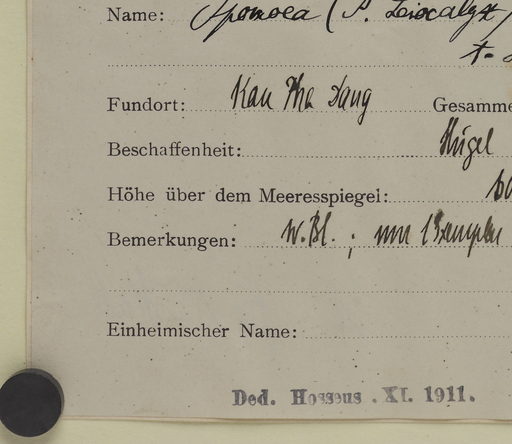 Name: Ipomoea (S. Leiocalyx
Fundort: Kau Tha Dang Gesamme
Beschaffenheit: Hügel
Höhe über dem Meeresspiegel:
Bemerkungen: W. Bl. ; nur 1 Exemplar
Einheimischer Name:
Ded. Hosseus . XI. 1911.